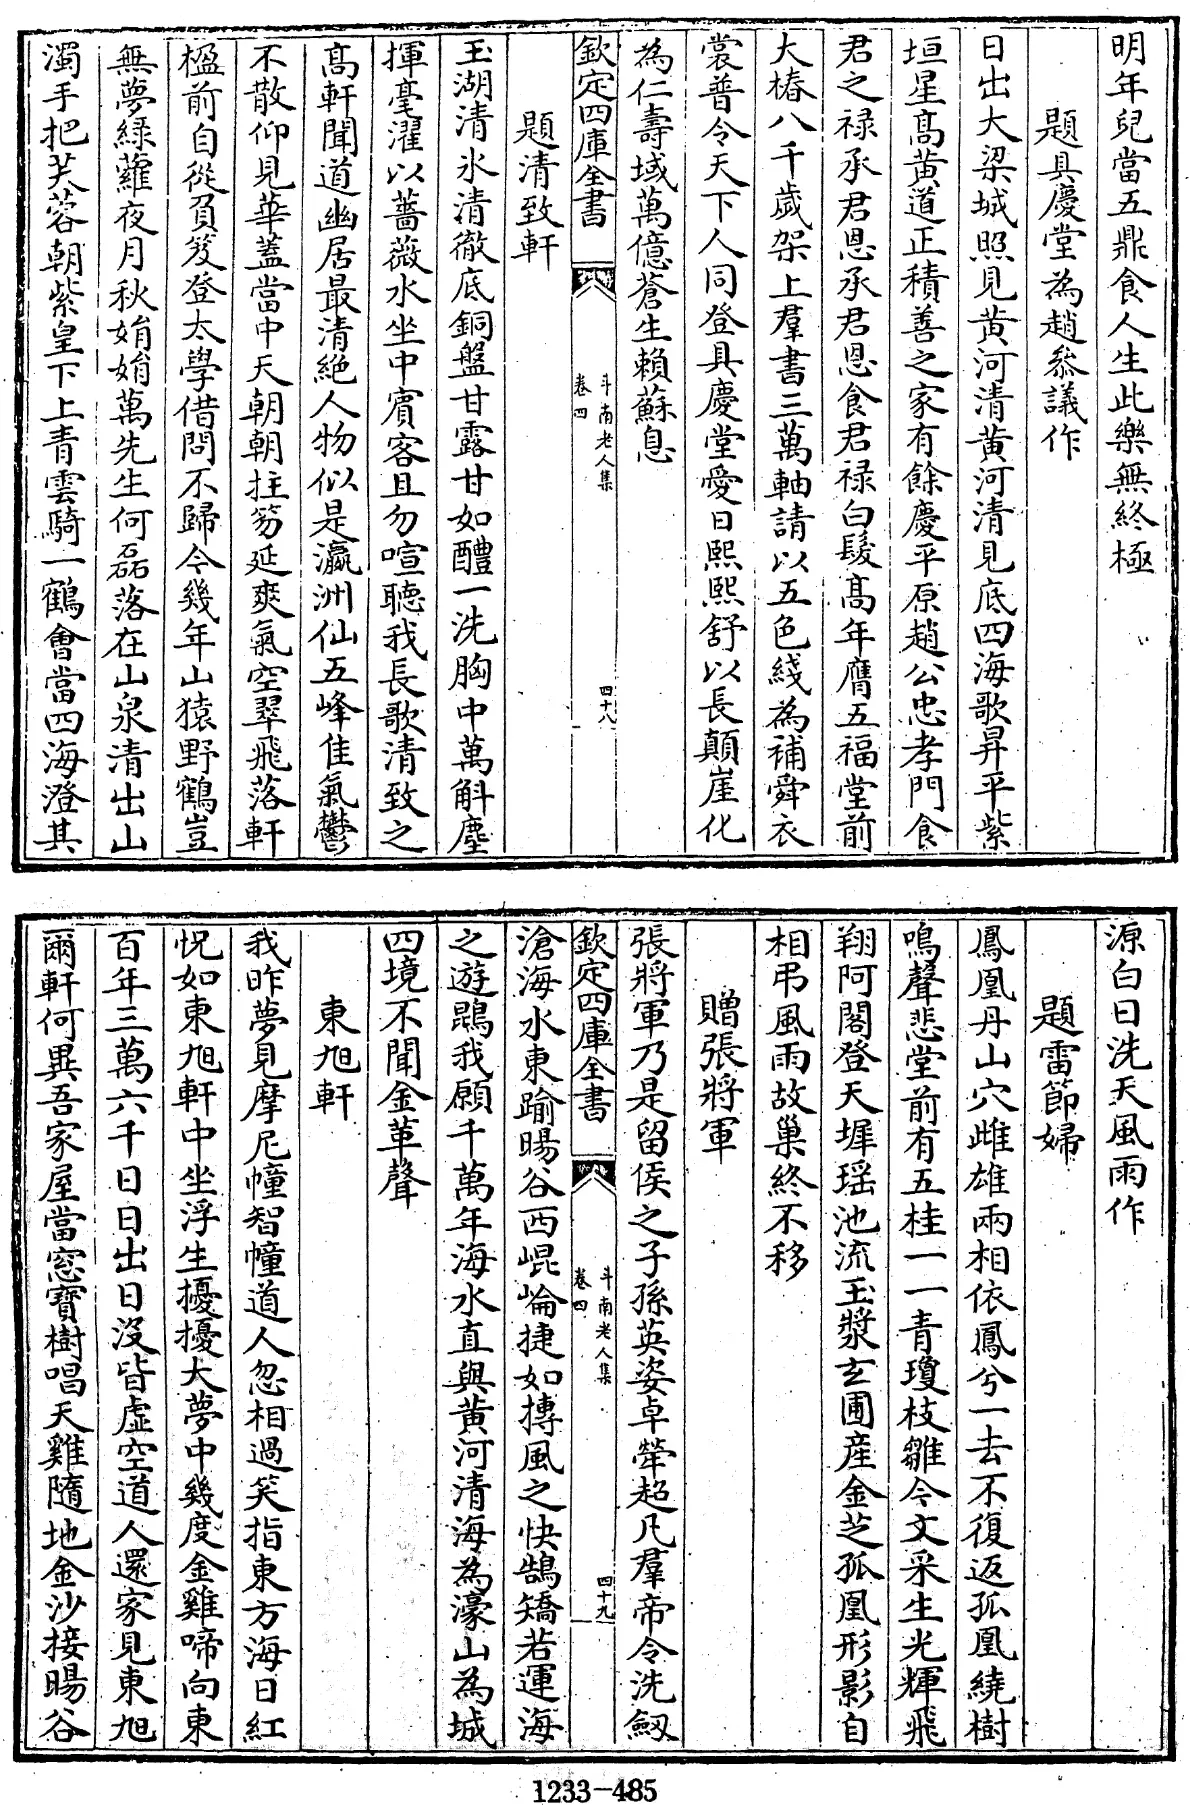 明年兒當五鼎食人生此樂無終極
題具慶堂為趙叅議作
日出大梁城照見黃河清黃河清見底四海歌昇平紫
垣星高黃道正積善之家有餘慶平原趙公忠孝門食
君之祿承君恩承君恩食君祿白髮高年膺五福堂前
大椿八千歲架上羣書三萬軸請以五色綫為補舜衣
裳普令天下人同登具慶堂愛日熙熙舒以長顛崖化
為仁壽域萬億蒼生賴蘇息
欽定四庫全書
斗南老人集
卷四
四十八
題清致軒
玉湖清水清徹底銅盤甘露甘如醴一洗胸中萬斛塵
揮毫濯以薔薇水坐中賓客且勿喧聽我長歌清致之
高軒聞道幽居最清絕人物似是瀛洲仙五峰佳氣鬱
不散仰見華蓋當中天朝朝拄笏延爽氣空翠飛落軒
楹前自從負笈登太學借問不歸今幾年山猿野鶴豈
無夢綠蘿夜月秋娟娟萬先生何磊落在山泉清出山
濁手把芙蓉朝紫皇下上青雲騎一鶴會當四海澄其
源白日洗天風雨作
題雷節婦
鳳凰丹山穴雌雄兩相依鳳兮一去不復返孤凰繞樹
鳴聲悲堂前有五桂一一青瓊枝雛今文采生光輝飛
翔阿閣登天墀瑶池流玉漿玄圃産金芝孤凰形影自
相弔風雨故巢終不移
贈張將軍
張將軍乃是留侯之子孫英姿卓犖超凡羣帝令洗劔
欽定四庫全書
斗南老人集
卷四
四十九
滄海水東踰暘谷西崐崘捷如摶風之快鶻矯若運海
之遊鵾我願千萬年海水直與黃河清海為濠山為城
四境不聞金革聲
東旭軒
我昨夢見摩尼幢智幢道人忽相過笑指東方海日紅
怳如東旭軒中坐浮生擾擾大夢中幾度金雞啼向東
百年三萬六千日日出日沒皆虛空道人還家見東旭
爾軒何異吾家屋當窓寶樹唱天雞隨地金沙接暘谷
1233-485